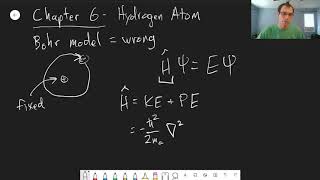 Chapter 6: Hydrogen Atom
Bohr model = wrong
fixed
Ĥ Ψ = E Ψ
Ĥ = KE + PE
= -ħ²/2mₑ ∇²